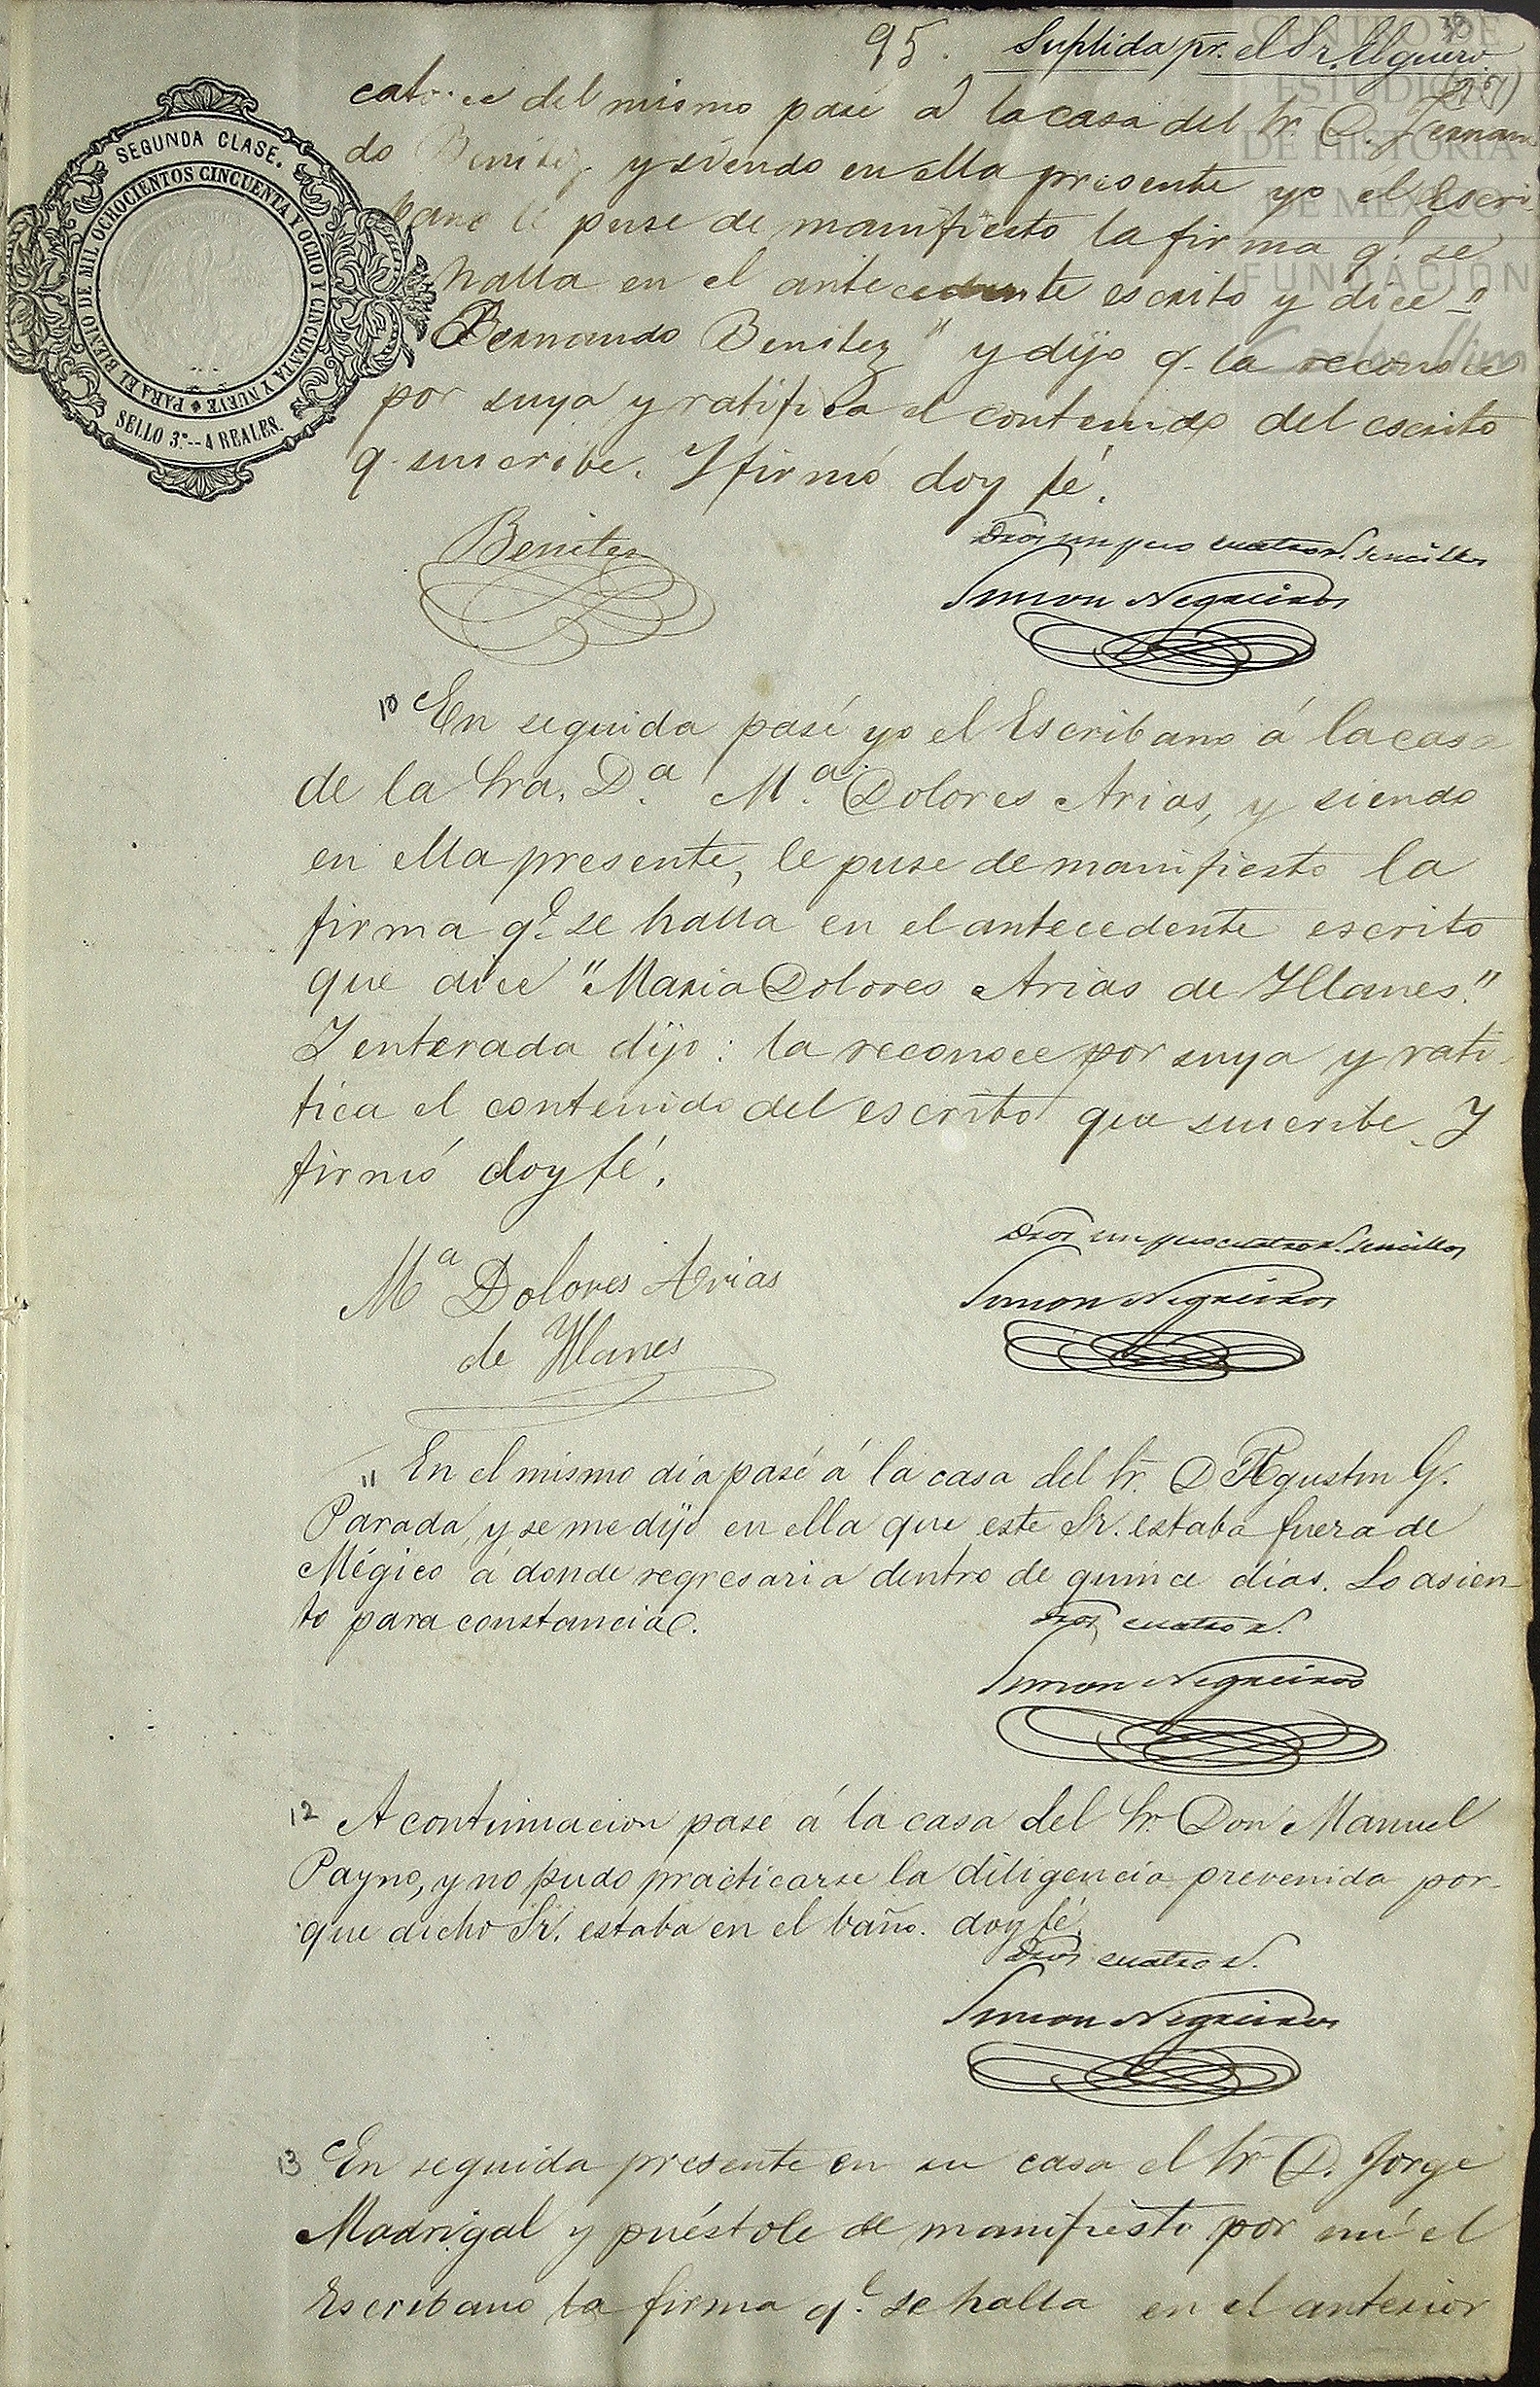 95. Suplida pr. el Sr. Elguero
CENTRO DE
ESTUDIOS
DE HISTORIA
DE MÉXICO
FUNDACIÓN
SEGUNDA CLASE.
PARA EL BIENIO DE MIL OCHOCIENTOS CINCUENTA Y OCHO Y CINCUENTA Y NUEVE
SELLO 3.º -- 4 REALES.
catorce del mismo pasé á la casa del Sr. D. Fernan
do Benitez y siendo en ella presente yo el Escri
bano le puse de manifiesto la firma q.e se
halla en el antecedente escrito y dice "
Fernando Benitez" y dijo q. la reconoce
por suya y ratifica el contenido del escrito
q. suscribe. Y firmó doy fé.
Benitez
Dros un peso cuatro r. sencillos
Simon Negreiros
10 En seguida pasé yo el Escribano á la casa
de la Sra. D.a M.a Dolores Arias, y siendo
en ella presente, le puse de manifiesto la
firma q.e se halla en el antecedente escrito
que dice "Maria Dolores Arias de Yllanes."
Y enterada dijo: la reconoce por suya y rati
fica el contenido del escrito que suscribe. Y
firmó doy fé.
Dros un peso cuatro r. sencillos
Mª Dolores Arias
de Yllanes
Simon Negreiros
11 En el mismo dia pasé á la casa del Sr. D Agustin G.
Parada, y se me dijo en ella que este Sr. estaba fuera de
Mégico á donde regresaria dentro de quince dias. Lo asien-
to para constancia.
Dros cuatro r.
Simon Negreiros
12 A continuacion pasé á la casa del Sr. Don Manuel
Payno, y no pudo practicarse la diligencia prevenida por-
que dicho Sr. estaba en el baño. doy fé.
Dros cuatro r.
Simon Negreiros
13 En seguida presente en su casa el Sr D. Jorge
Madrigal y puéstole de manifiesto por mi el
Escribano la firma q.e se halla en el anterior